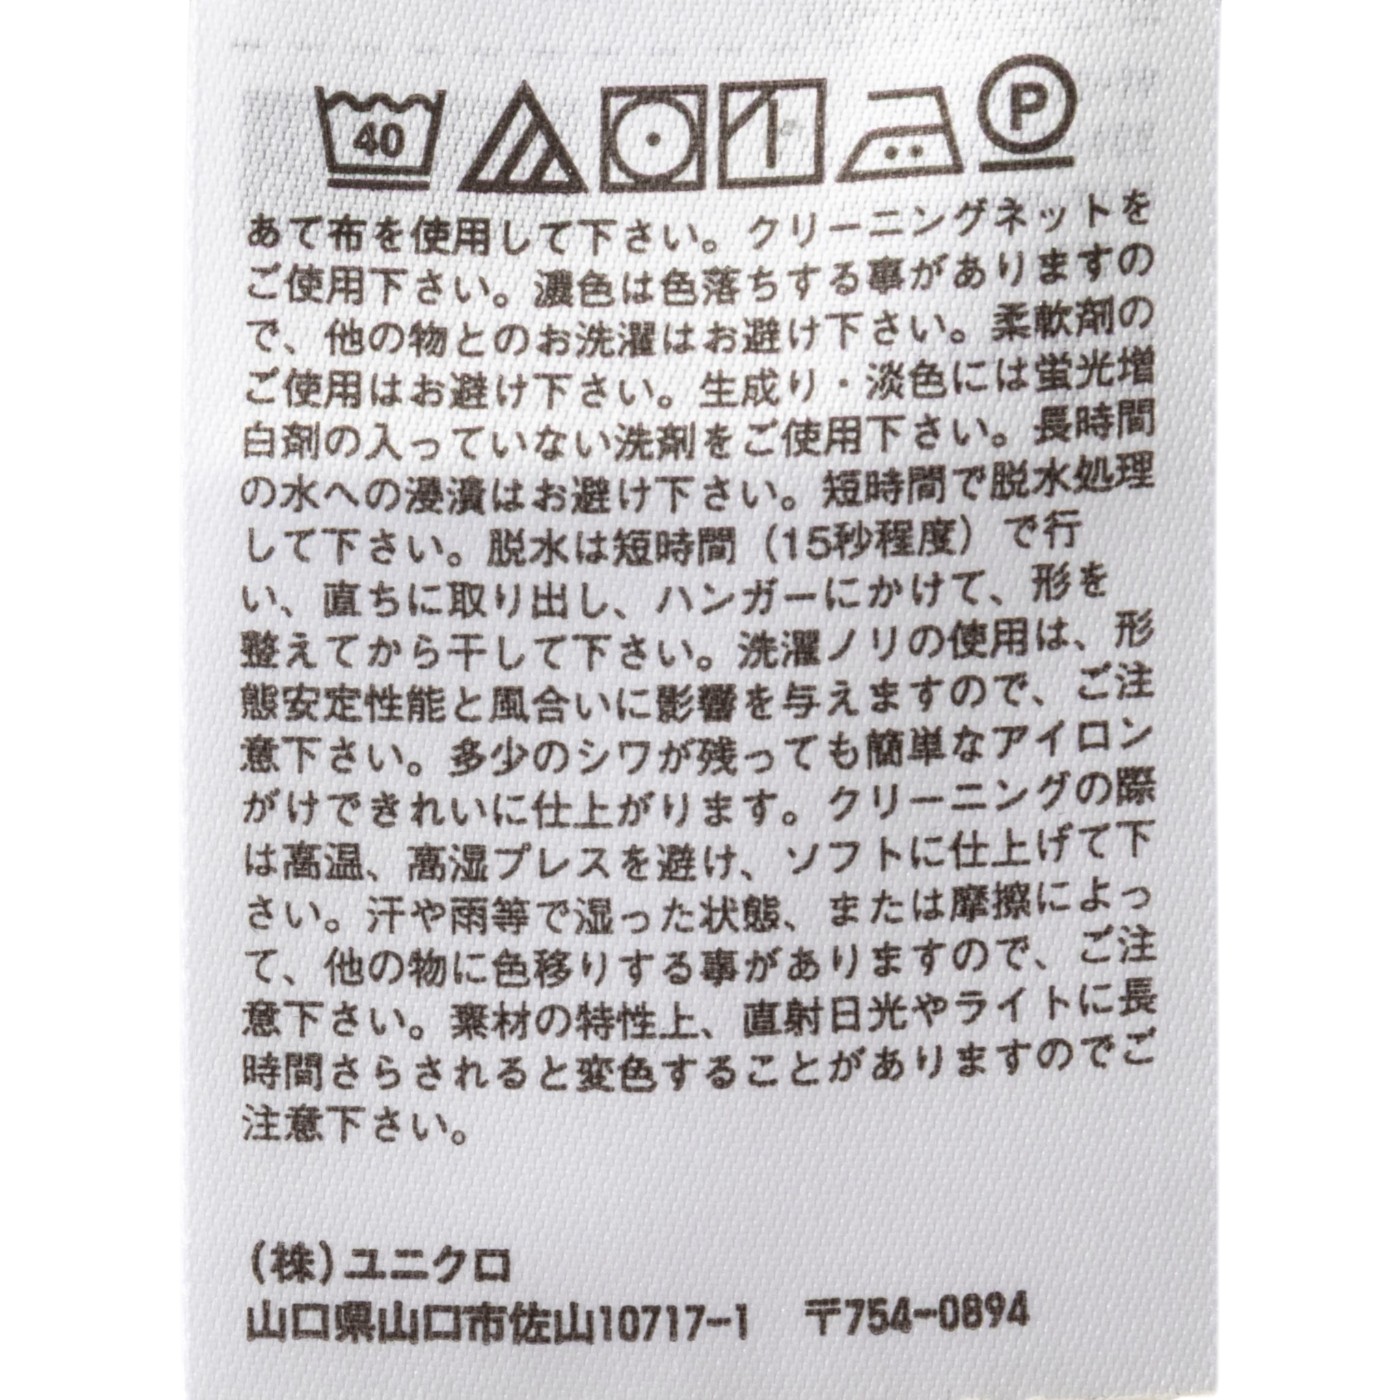 40
P
あて布を使用して下さい。クリーニングネットを
ご使用下さい。濃色は色落ちする事がありますの
で、他の物とのお洗濯はお避け下さい。柔軟剤の
ご使用はお避け下さい。生成り・淡色には蛍光増
白剤の入っていない洗剤をご使用下さい。長時間
の水への浸漬はお避け下さい。短時間で脱水処理
して下さい。脱水は短時間（15秒程度）で行
い、直ちに取り出し、ハンガーにかけて、形を
整えてから干して下さい。洗濯ノリの使用は、形
態安定性能と風合いに影響を与えますので、ご注
意下さい。多少のシワが残っても簡単なアイロン
がけできれいに仕上がります。クリーニングの際
は高温、高湿プレスを避け、ソフトに仕上げて下
さい。汗や雨等で湿った状態、または摩擦によっ
て、他の物に色移りする事がありますので、ご注
意下さい。素材の特性上、直射日光やライトに長
時間さらされると変色することがありますのでご
注意下さい。
(株)ユニクロ
山口県山口市佐山10717-1 〒754-0894